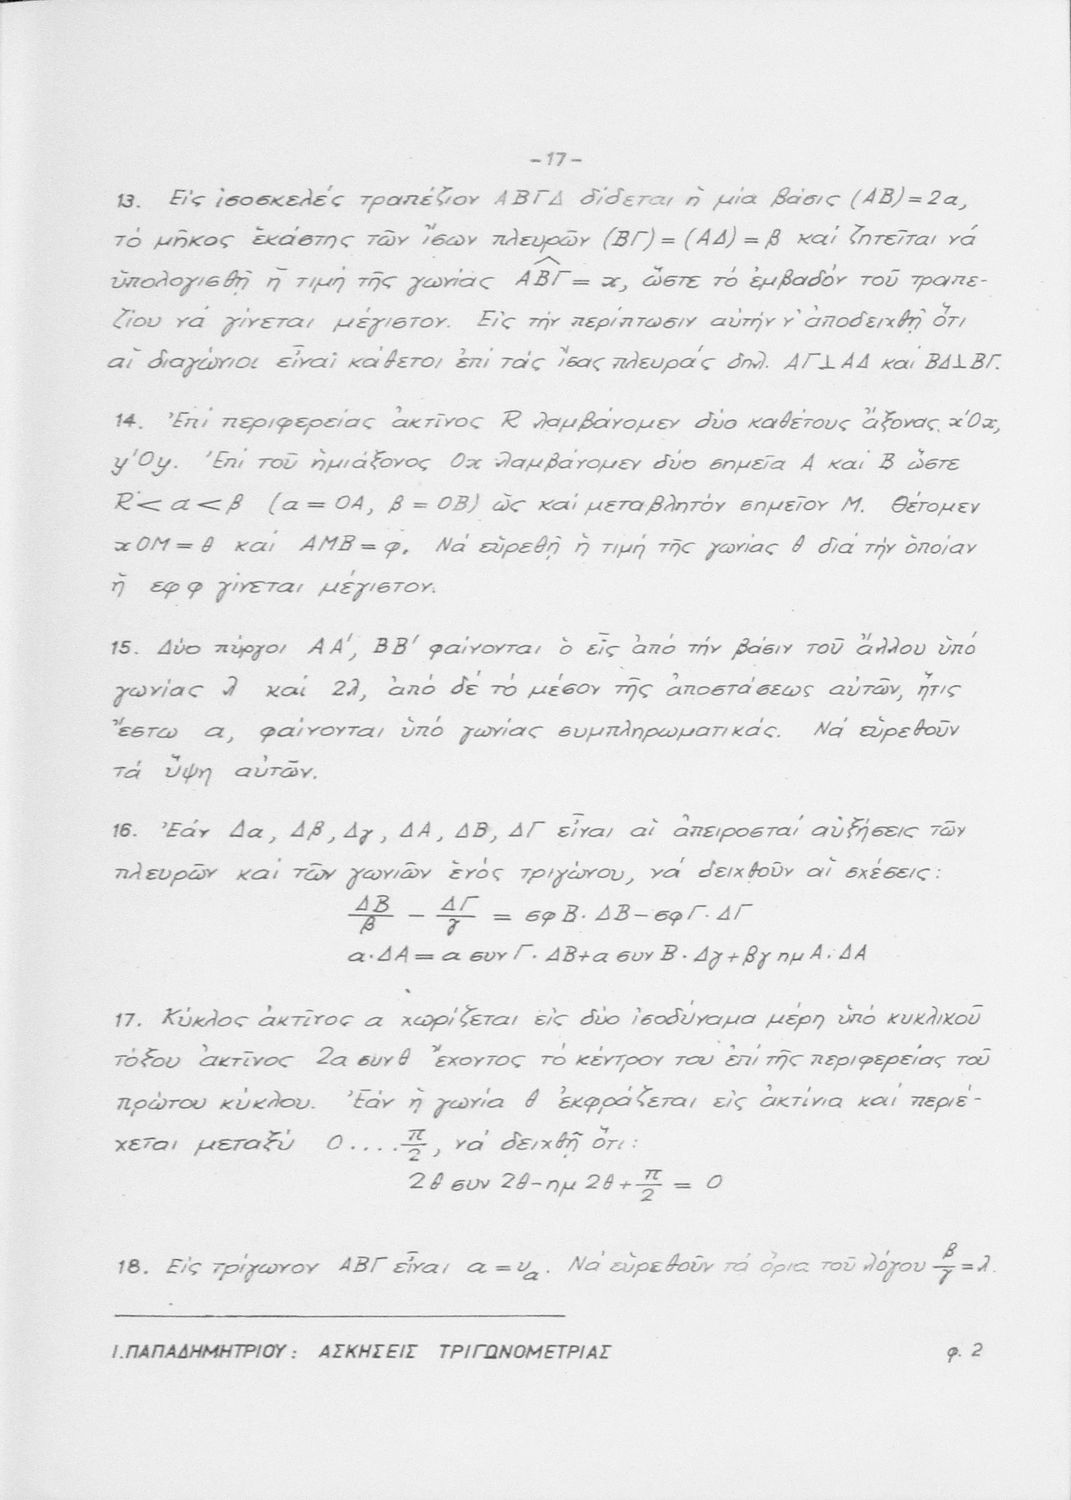 -17-
13. Εἰς ἰσοσκελές τραπέζιον ΑΒΓΔ δίδεται ἡ μία βάσις (ΑΒ)=2α,
τό μῆκος ἑκάστης τῶν ἴσων πλευρῶν (ΒΓ)=(ΑΔ)=β καί ζητεῖται νά
ὑπολογισθῇ ἡ τιμή τῆς γωνίας \widehat{ΑΒΓ} = x, ὥστε τό ἐμβαδόν τοῦ τραπε-
ζίου νά γίνεται μέγιστον. Εἰς τήν περίπτωσιν αὐτήν ν' ἀποδειχθῇ ὅτι
αἱ διαγώνιοι εἶναι κάθετοι ἐπί τάς ἴσας πλευράς δηλ. ΑΓ⊥ΑΔ καί ΒΔ⊥ΒΓ.
14. Ἐπί περιφερείας ἀκτῖνος R λαμβάνομεν δύο καθέτους ἄξονας x'Ox,
y'Oy. Ἐπί τοῦ ἡμιάξονος Ox λαμβάνομεν δύο σημεῖα Α καί Β ὥστε
R<α<β (α=ΟΑ, β=ΟΒ) ὡς καί μεταβλητόν σημεῖον Μ. Θέτομεν
xOM=θ καί ΑΜΒ=φ. Νά εὑρεθῇ ἡ τιμή τῆς γωνίας θ διά τήν ὁποίαν
ἡ εφφ γίνεται μέγιστον.
15. Δύο πύργοι ΑΑ', ΒΒ' φαίνονται ὁ εἷς ἀπό τήν βάσιν τοῦ ἄλλου ὑπό
γωνίας λ καί 2λ, ἀπό δέ τό μέσον τῆς ἀποστάσεως αὐτῶν, ἥτις
ἔστω α, φαίνονται ὑπό γωνίας συμπληρωματικάς. Νά εὑρεθοῦν
τά ὕψη αὐτῶν.
16. Ἐάν Δα, Δβ, Δγ, ΔΑ, ΔΒ, ΔΓ εἶναι αἱ ἀπειροσταί αὐξήσεις τῶν
πλευρῶν καί τῶν γωνιῶν ἑνός τριγώνου, νά δειχθοῦν αἱ σχέσεις:
ΔΒ/β - ΔΓ/γ = σφΒ·ΔΒ-σφΓ·ΔΓ
α·ΔΑ=α συνΓ·ΔΒ+α συνΒ·Δγ+βγ ημΑ·ΔΑ
17. Κύκλος ἀκτῖνος α χωρίζεται εἰς δύο ἰσοδύναμα μέρη ὑπό κυκλικοῦ
τόξου ἀκτῖνος 2α συνθ ἔχοντος τό κέντρον του ἐπί τῆς περιφερείας τοῦ
πρώτου κύκλου. Ἐάν ἡ γωνία θ ἐκφράζεται εἰς ἀκτίνια καί περιέ-
χεται μεταξύ 0....π/2, νά δειχθῇ ὅτι:
2θ συν 2θ-ημ 2θ+π/2 = 0
18. Εἰς τρίγωνον ΑΒΓ εἶναι α=υα. Νά εὑρεθοῦν τά ὅρια τοῦ λόγου β/γ=λ.
Ι.ΠΑΠΑΔΗΜΗΤΡΙΟΥ: ΑΣΚΗΣΕΙΣ ΤΡΙΓΩΝΟΜΕΤΡΙΑΣ φ. 2